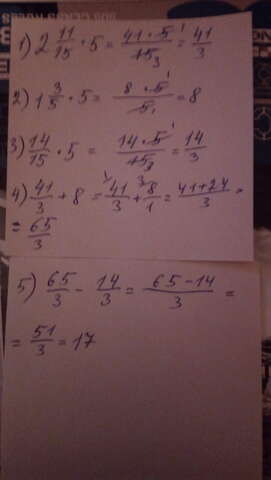 1) 2 11/15 · 5 = 41·5/15 3 = 41/3
2) 1 3/5 · 5 = 8·5/5 = 8
3) 14/15 · 5 = 14·5/15 3 = 14/3
4) 41/3 + 8 = 41/3 + 8/1 = 41+24/3 =
= 65/3
5) 65/3 - 14/3 = 65-14/3 =
= 51/3 = 17